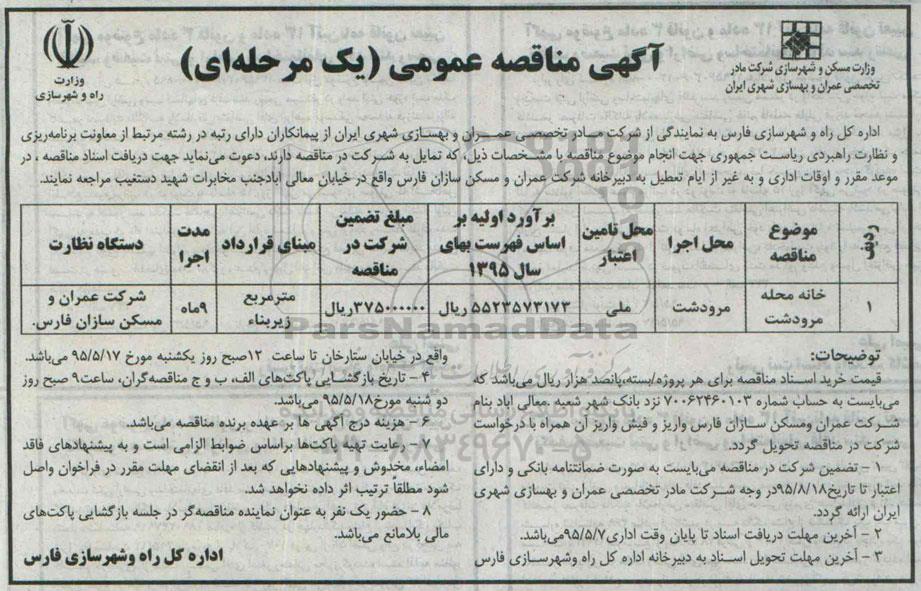 آگهی مناقصه عمومی (یک مرحله‌ای)
وزارت مسکن و شهرسازی شرکت مادر
تخصصی عمران و بهسازی شهری ایران
وزارت
راه و شهرسازی
اداره کل راه و شهرسازی فارس به نمایندگی از شرکت مادر تخصصی عمران و بهسازی شهری ایران از پیمانکاران دارای رتبه در رشته مرتبط از معاونت برنامه‌ریزی
و نظارت راهبردی ریاست جمهوری جهت انجام موضوع مناقصه با مشخصات ذیل، که تمایل به شرکت در مناقصه دارند، دعوت می‌نماید جهت دریافت اسناد مناقصه ، در
موعد مقرر و اوقات اداری و به غیر از ایام تعطیل به دبیرخانه شرکت عمران و مسکن سازان فارس واقع در خیابان معالی ابادجنب مخابرات شهید دستغیب مراجعه نمایند.
ردیف موضوع مناقصه محل اجرا محل تامین اعتبار برآورد اولیه بر اساس فهرست بهای سال ۱۳۹۵ مبلغ تضمین شرکت در مناقصه مبنای قرارداد مدت اجرا دستگاه نظارت
۱ خانه محله مرودشت مرودشت ملی ۵۵۲۳۵۷۳۱۷۳ ریال ۳۷۵۰۰۰۰۰۰ریال مترمربع زیربناء ۹ماه شرکت عمران و مسکن سازان فارس.
توضیحات:
قیمت خرید اسناد مناقصه برای هر پروژه/بسته،پانصد هزار ریال می‌باشد که
می‌بایست به حساب شماره ۷۰۰۶۲۴۶۰۱۰۳ نزد بانک شهر شعبه .معالی اباد بنام
شرکت عمران ومسکن سازان فارس واریز و فیش واریز آن همراه با درخواست
شرکت در مناقصه تحویل گردد.
۱ – تضمین شرکت در مناقصه می‌بایست به صورت ضمانتنامه بانکی و دارای
اعتبار تا تاریخ۹۵/۸/۱۸در وجه شرکت مادر تخصصی عمران و بهسازی شهری
ایران ارائه گردد.
۲ – آخرین مهلت دریافت اسناد تا پایان وقت اداری۹۵/۵/۷می‌باشد.
۳ – آخرین مهلت تحویل اسناد به دبیرخانه اداره کل راه وشهرسازی فارس
واقع در خیابان ستارخان تا ساعت ۱۲صبح روز یکشنبه مورخ ۹۵/۵/۱۷ می‌باشد.
۴ – تاریخ بازگشایی پاکت‌های الف، ب و ج مناقصه‌گران، ساعت۹ صبح روز
دو شنبه مورخ۹۵/۵/۱۸ می‌باشد.
۶ – هزینه درج آگهی ها بر عهده برنده مناقصه می‌باشد.
۷ – رعایت تهیه پاکت‌ها براساس ضوابط الزامی است و به پیشنهادهای فاقد
امضاء، مخدوش و پیشنهادهایی که بعد از انقضای مهلت مقرر در فراخوان واصل
شود مطلقاً ترتیب اثر داده نخواهد شد.
۸ – حضور یک نفر به عنوان نماینده مناقصه‌گر در جلسه بازگشایی پاکت‌های
مالی بلامانع می‌باشد.
اداره کل راه وشهرسازی فارس
ParsNamadData